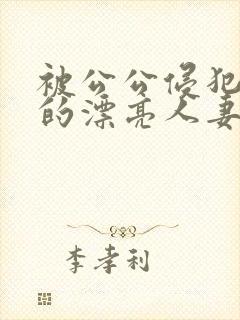 被公公侵犯
的漂亮人妻
李孝利